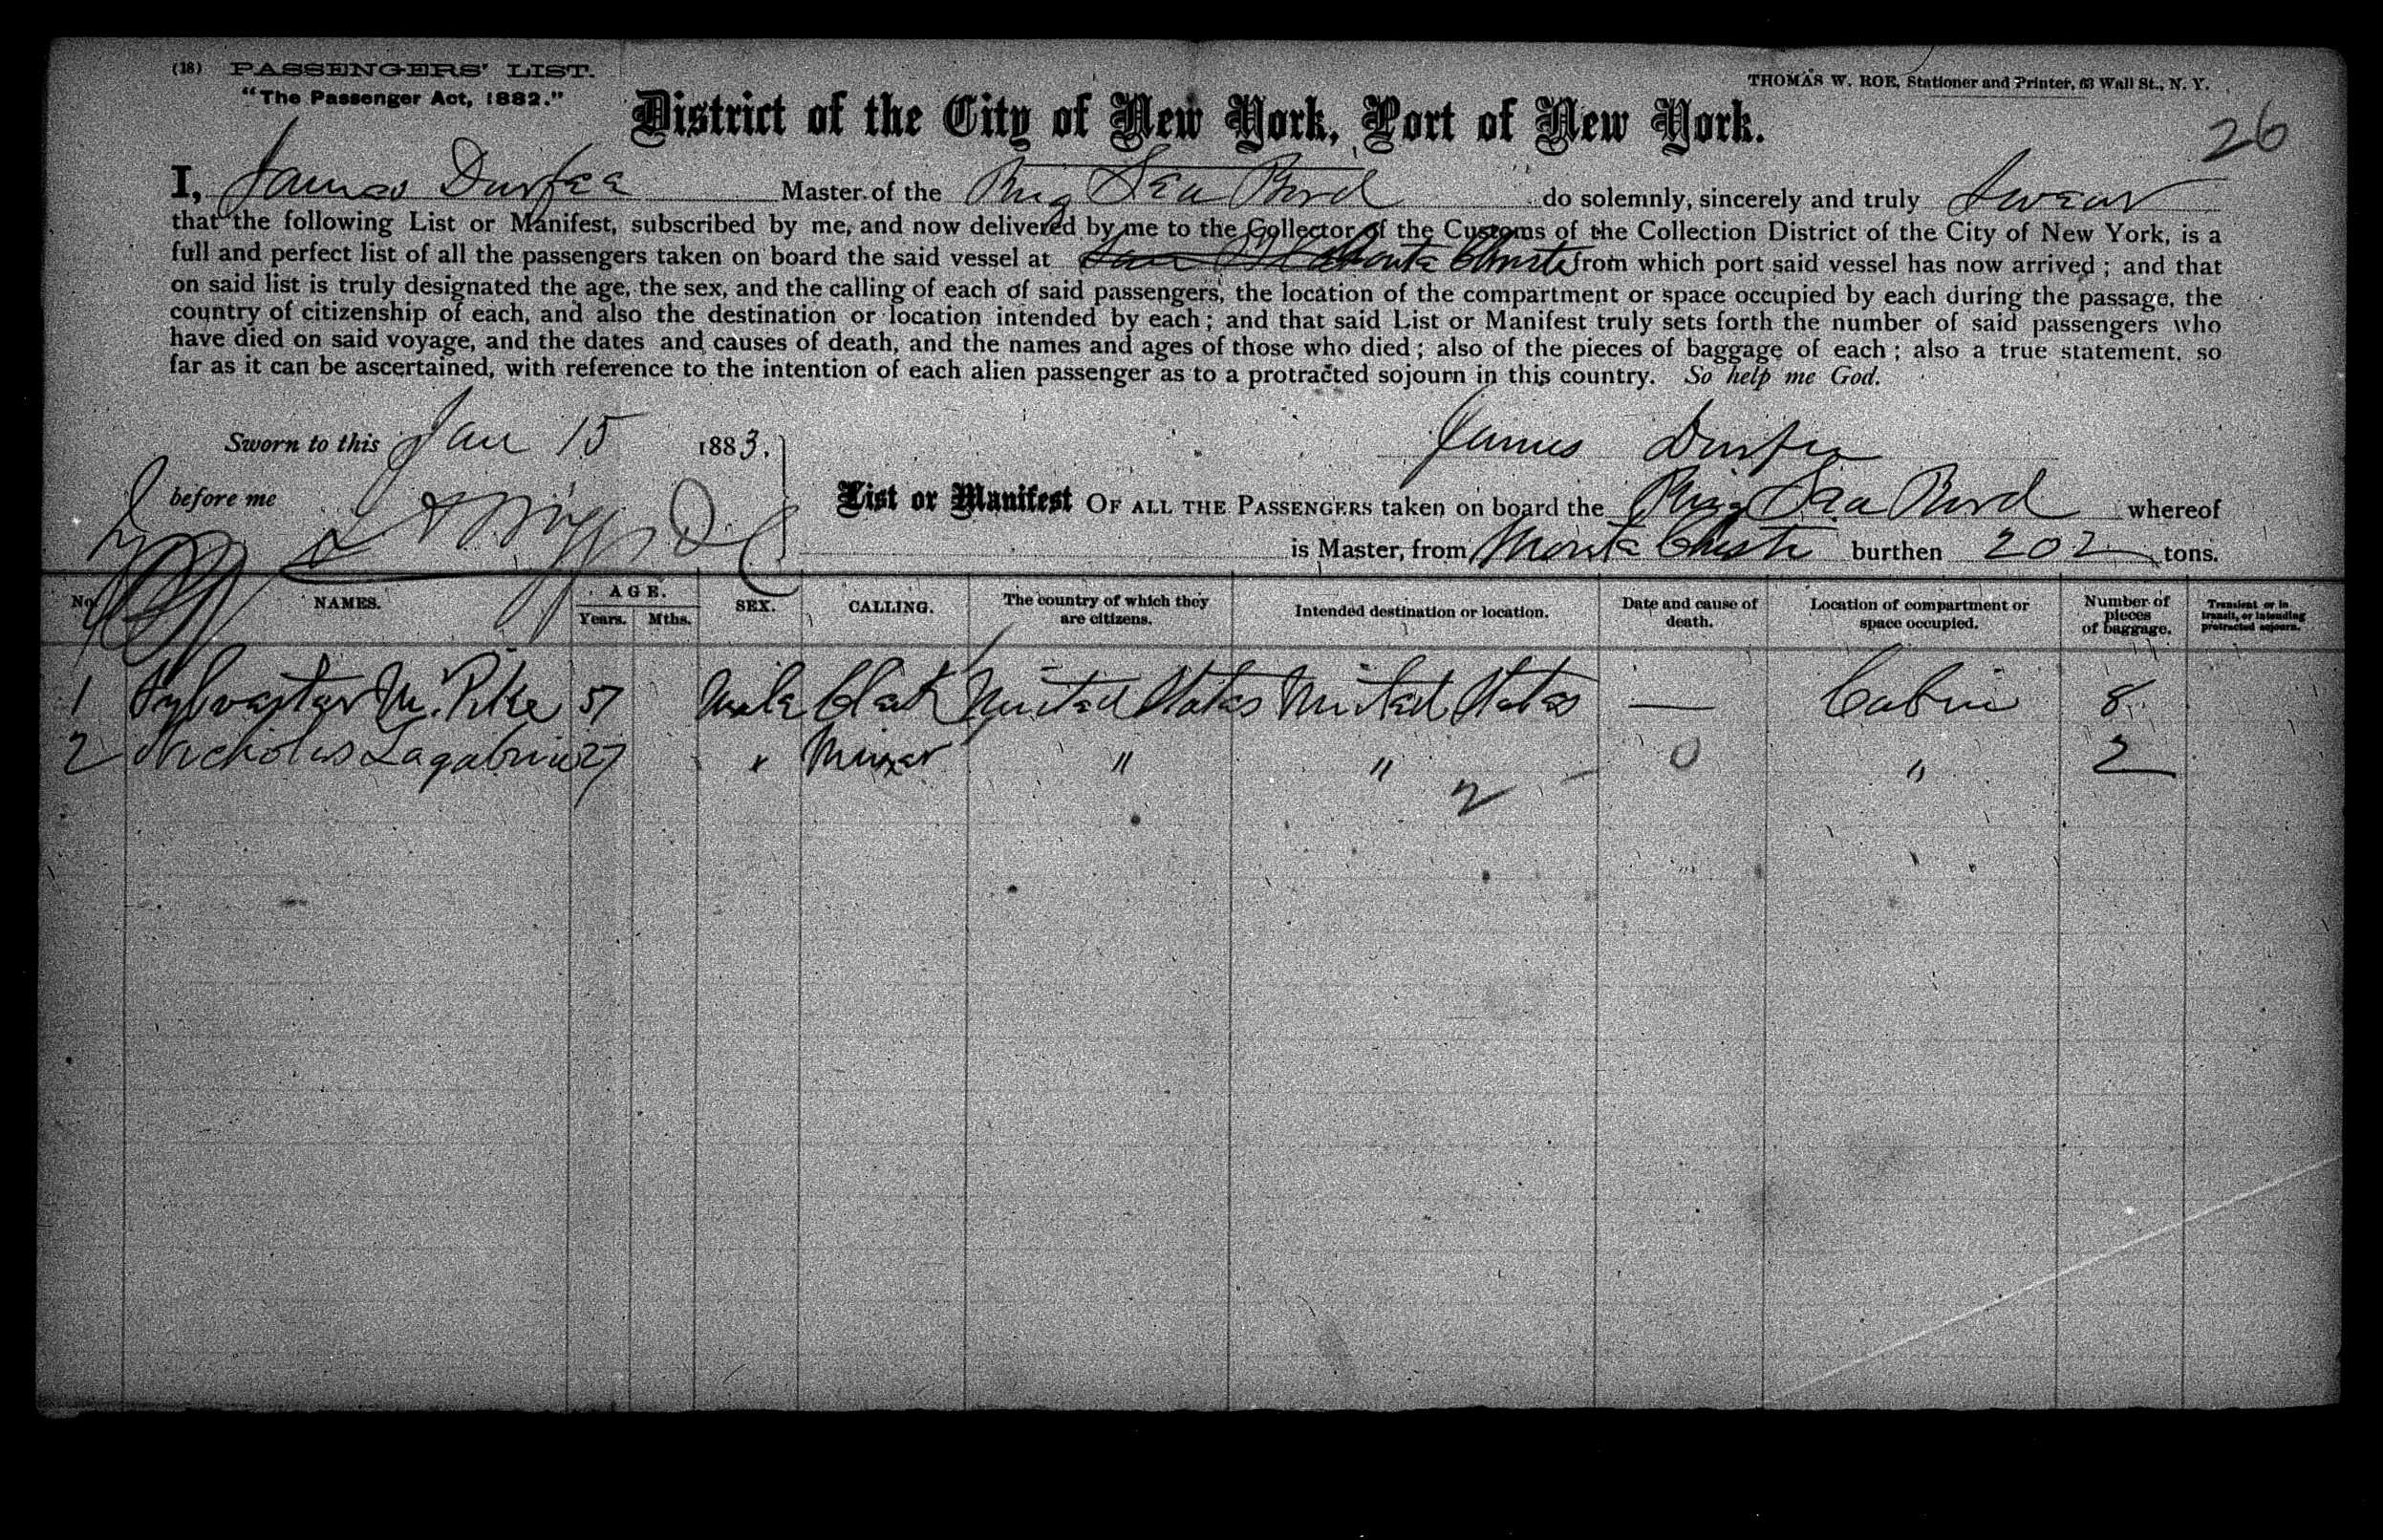 (18) PASSENGERS' LIST.
THOMAS W. ROE, Stationer and Printer, 63 Wall St., N. Y.
"The Passenger Act, 1882."
District of the City of New York, Port of New York.
26
I, James Durfee Master of the Brig Sea Bird do solemnly, sincerely and truly Swear
that the following List or Manifest, subscribed by me, and now delivered by me to the Collector of the Customs of the Collection District of the City of New York, is a
full and perfect list of all the passengers taken on board the said vessel at Monte Christe from which port said vessel has now arrived; and that
on said list is truly designated the age, the sex, and the calling of each of said passengers, the location of the compartment or space occupied by each during the passage, the
country of citizenship of each, and also the destination or location intended by each; and that said List or Manifest truly sets forth the number of said passengers who
have died on said voyage, and the dates and causes of death, and the names and ages of those who died; also of the pieces of baggage of each; also a true statement, so
far as it can be ascertained, with reference to the intention of each alien passenger as to a protracted sojourn in this country. So help me God.
Sworn to this Jan 15 1883.
James Durfee
before me
List or Manifest OF ALL THE PASSENGERS taken on board the Brig Sea Bird whereof
is Master, from Monte Christe burthen 202 tons.
No. NAMES. AGE. Years. Mths. SEX. CALLING. The country of which they are citizens. Intended destination or location. Date and cause of death. Location of compartment or space occupied. Number of pieces of baggage. Transient or in transit, or intending protracted sojourn.
1 Sylvester M. Pike 57 Male Clerk United States United States — Cabin 8
2 Nicholas 27 " Miner " " 0 " 2
2